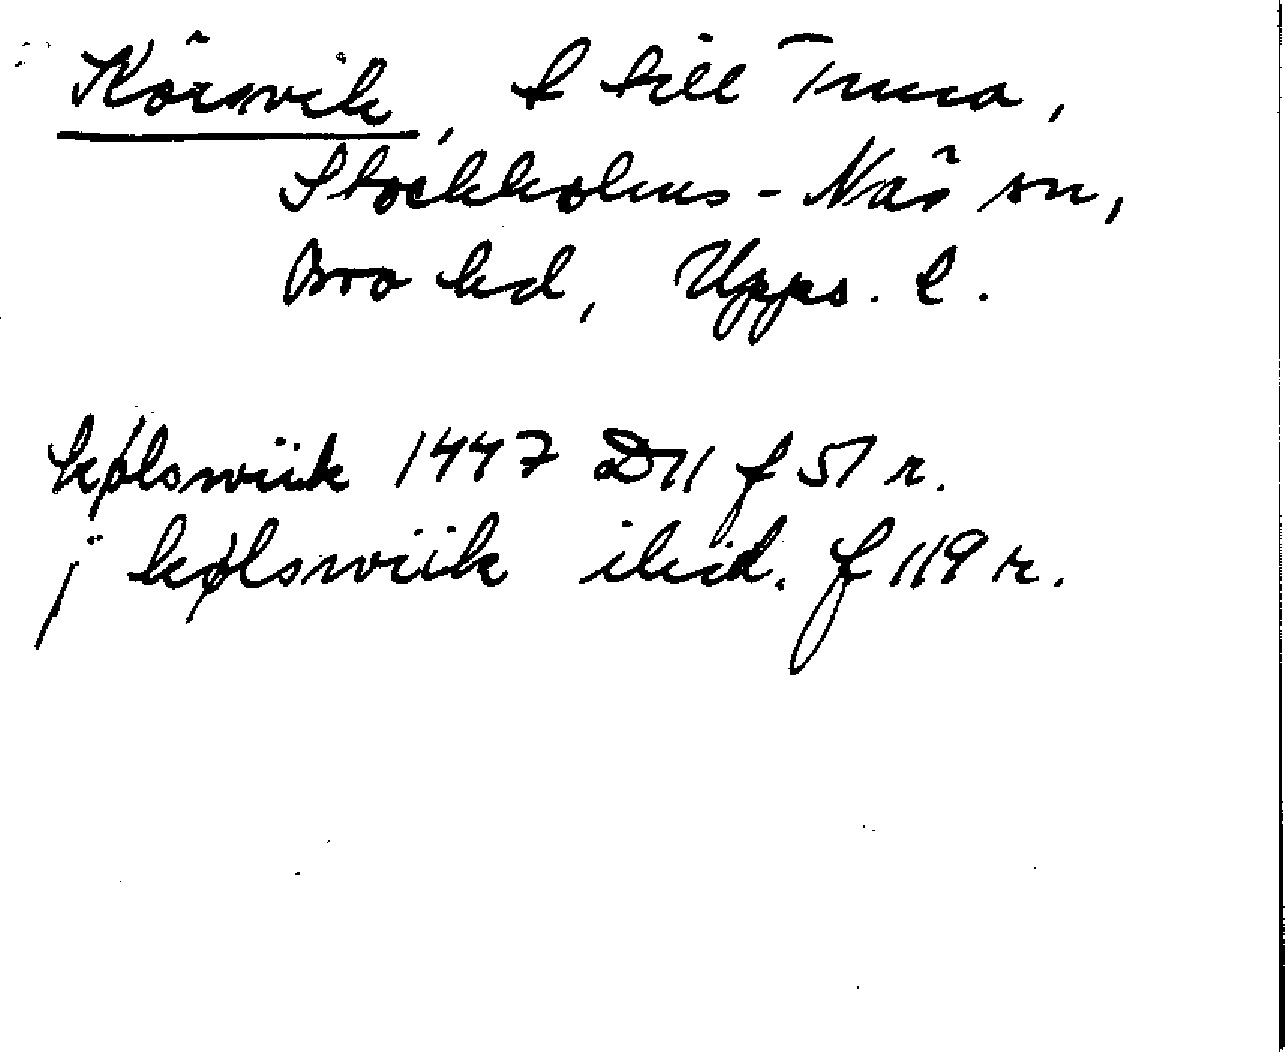 Körsvik, t till Tuna,
Stockholms-Näs sn,
Bro hd, Upps. l.
kølswiik 1447 D11 f 51 r.
j kølswiik ibid. f 119 r.